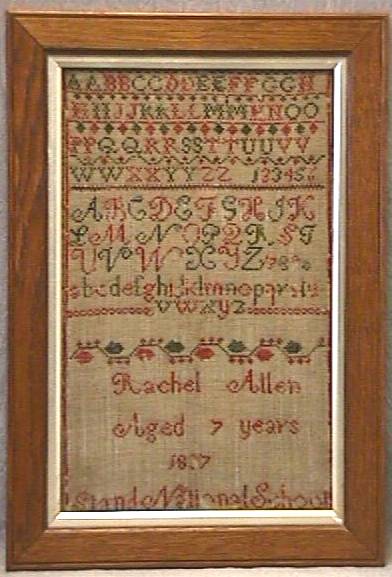 AABBCCDDEEFFGGH
HHIJJKKLLMMNNOO
PPQQRRSSTTUUVV
WWXXYYZZ 123456
ABCDEFGHIK
LMNOPQRST
UVWXYZ
abcdefghijklmnopqrstu
vwxyz
Rachel Allen
Aged 7 years
National School